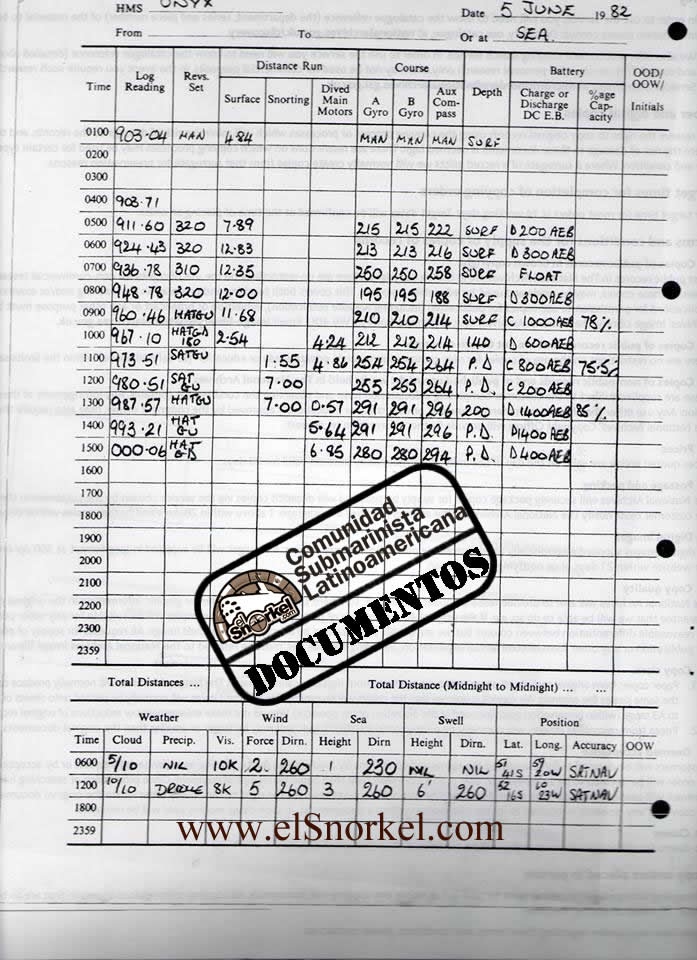 HMS ONYX
Date 5 JUNE 1982
From To Or at SEA.
Time Log Reading Revs. Set Distance Run Course Depth Battery OOD/ OOW/ Initials
Surface Snorting Dived Main Motors A Gyro B Gyro Aux Compass Charge or Discharge DC E.B. %age Capacity
0100 903.04 MAN 4.84 MAN MAN MAN SURF
0200
0300
0400 903.71
0500 911.60 320 7.89 215 215 222 SURF D 200 AEB
0600 924.43 320 12.83 213 213 216 SURF D 300 AEB
0700 936.78 310 12.35 250 250 258 SURF FLOAT
0800 948.78 320 12.00 195 195 188 SURF D 300 AEB
0900 960.46 HATGU 11.68 210 210 214 SURF C 1000 AEB 78%
1000 967.10 HATGD 180 2.54 4.24 212 212 214 140 D 600 AEB
1100 973.51 SATGU 1.55 4.86 254 254 264 P.D. C 800 AEB 75.5%
1200 980.51 SAT GU 7.00 255 255 264 P.D. C 200 AEB
1300 987.57 HATGU 7.00 0.57 291 291 296 200 D 1400 AEB 85%
1400 993.21 HAT GU 5.64 291 291 296 P.D. D 1400 AEB
1500 000.06 HAT GD 6.85 280 280 294 P.D. D 400 AEB
1600
1700
1800
1900
2000
2100
2200
2300
2359
Comunidad
Submarinista
Latinoamericana
elSnorkel.com
DOCUMENTOS
Total Distances ... Total Distance (Midnight to Midnight) ... ...
Weather Wind Sea Swell Position
Time Cloud Precip. Vis. Force Dirn. Height Dirn Height Dirn. Lat. Long. Accuracy OOW
0600 5/10 NIL 10K 2 260 1 230 NIL NIL 51 41S 59 20W SATNAV
1200 10/10 8K 5 260 3 260 6' 260 52 16S 60 23W SATNAV
1800
2359
www.elSnorkel.com